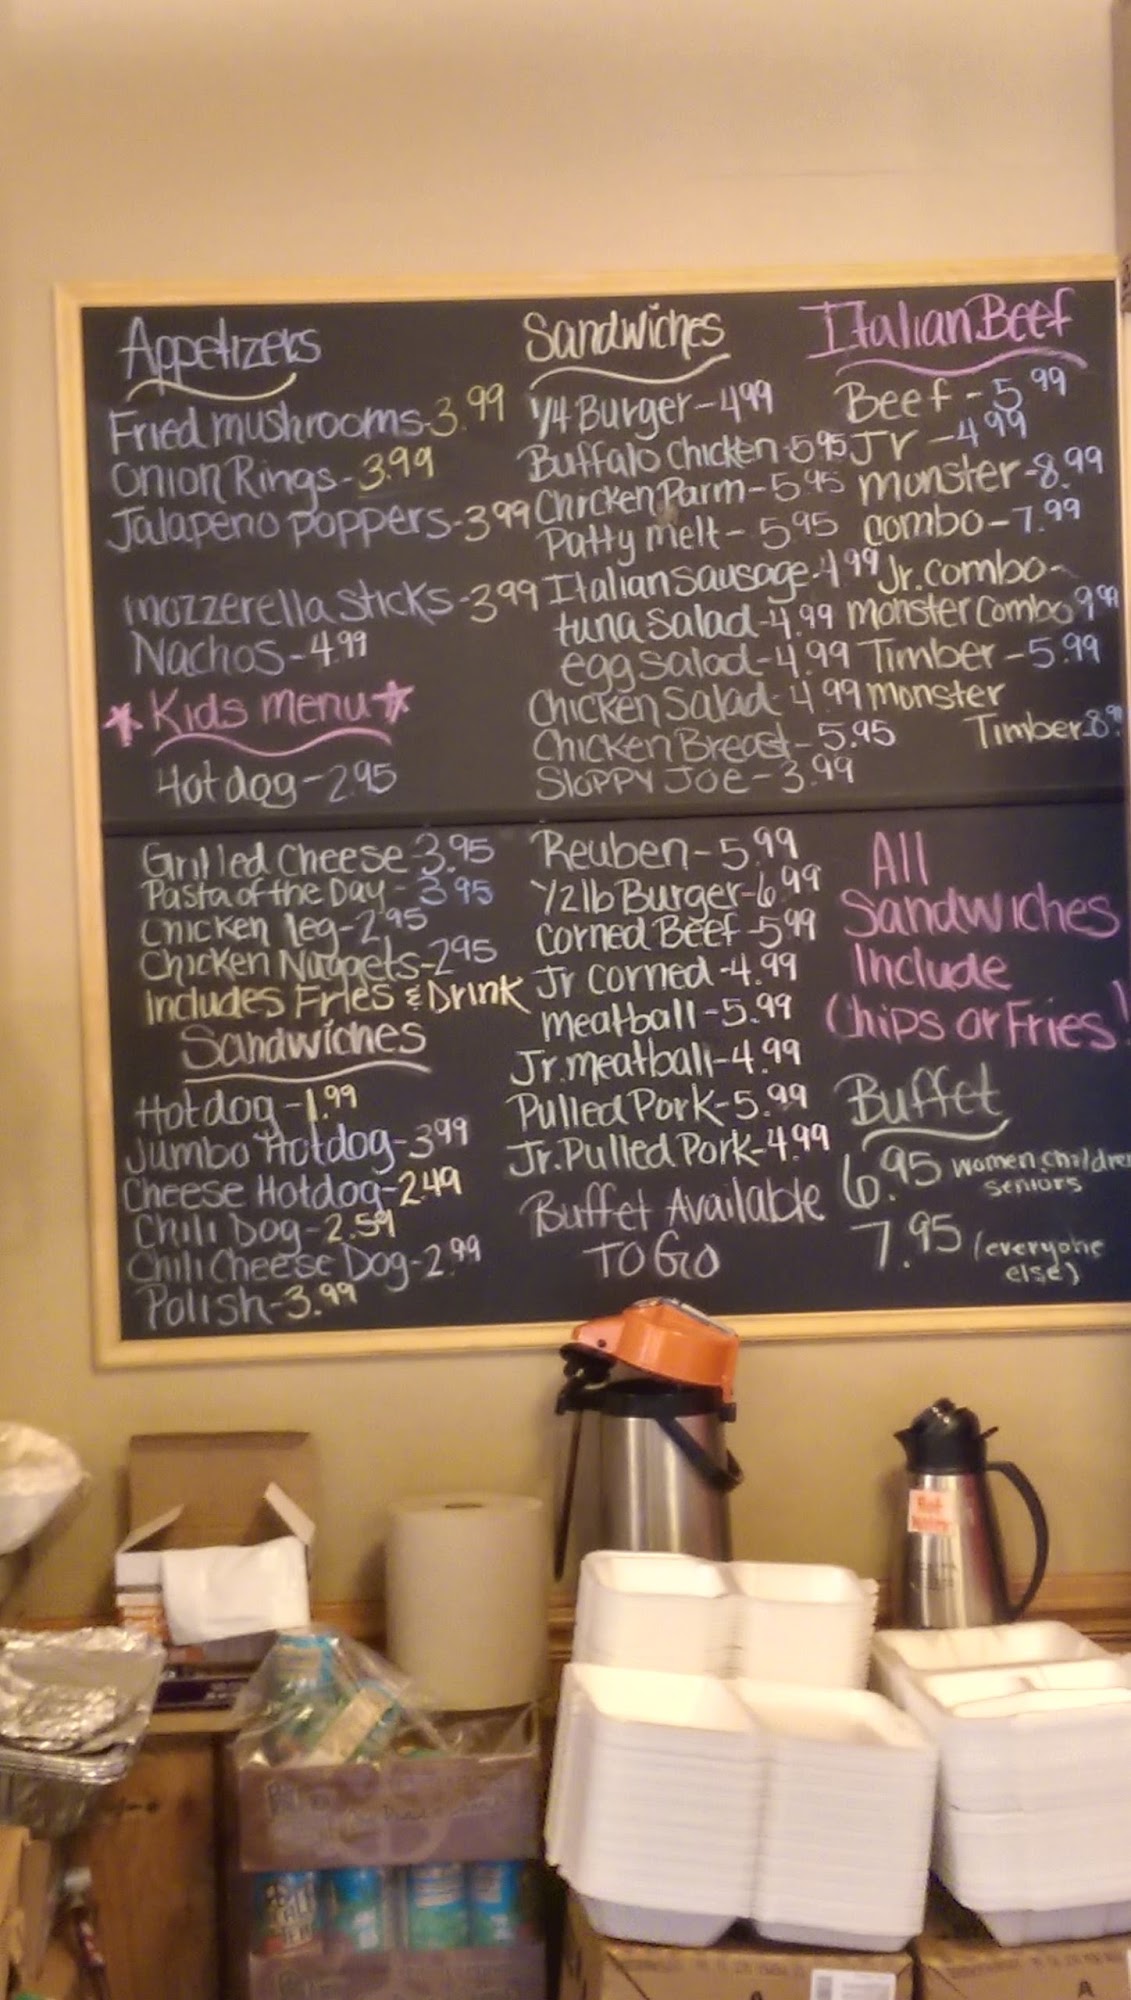 Appetizers
Fried mushrooms-3.99
Onion Rings-3.99
Jalapeno poppers-3.99
mozzerella sticks-3.99
Nachos-4.99
Kids menu
Hot dog-2.95
Grilled Cheese-3.95
Pasta of the Day-3.95
Chicken leg-2.95
Chicken Nuggets-2.95
Includes Fries & Drink
Sandwiches
Hotdog-1.99
Jumbo Hotdog-3.99
Cheese Hotdog-2.49
Chili Dog-2.59
Chili Cheese Dog-2.99
Polish-3.99
Sandwiches
1/4 Burger-4.99
Buffalo Chicken-5.95
Chicken Parm-5.95
Patty melt-5.95
Italian Sausage-4.99
tuna Salad-4.99
egg Salad-4.99
Chicken Salad-4.99
Chicken Breast-5.95
Sloppy Joe-3.99
Reuben-5.99
1/2 lb Burger-6.99
Corned Beef-5.99
Jr Corned-4.99
meatball-5.99
Jr. meatball-4.99
Pulled Pork-5.99
Jr. Pulled Pork-4.99
Buffet Available
TO GO
Italian Beef
Beef-5.99
Jr-4.99
monster-8.99
combo-7.99
Jr. combo-
monster combo 9.99
Timber-5.99
monster
Timber-8.9
All
Sandwiches
Include
Chips or Fries!
Buffet
6.95 women, children
seniors
7.95 (everyone
else)